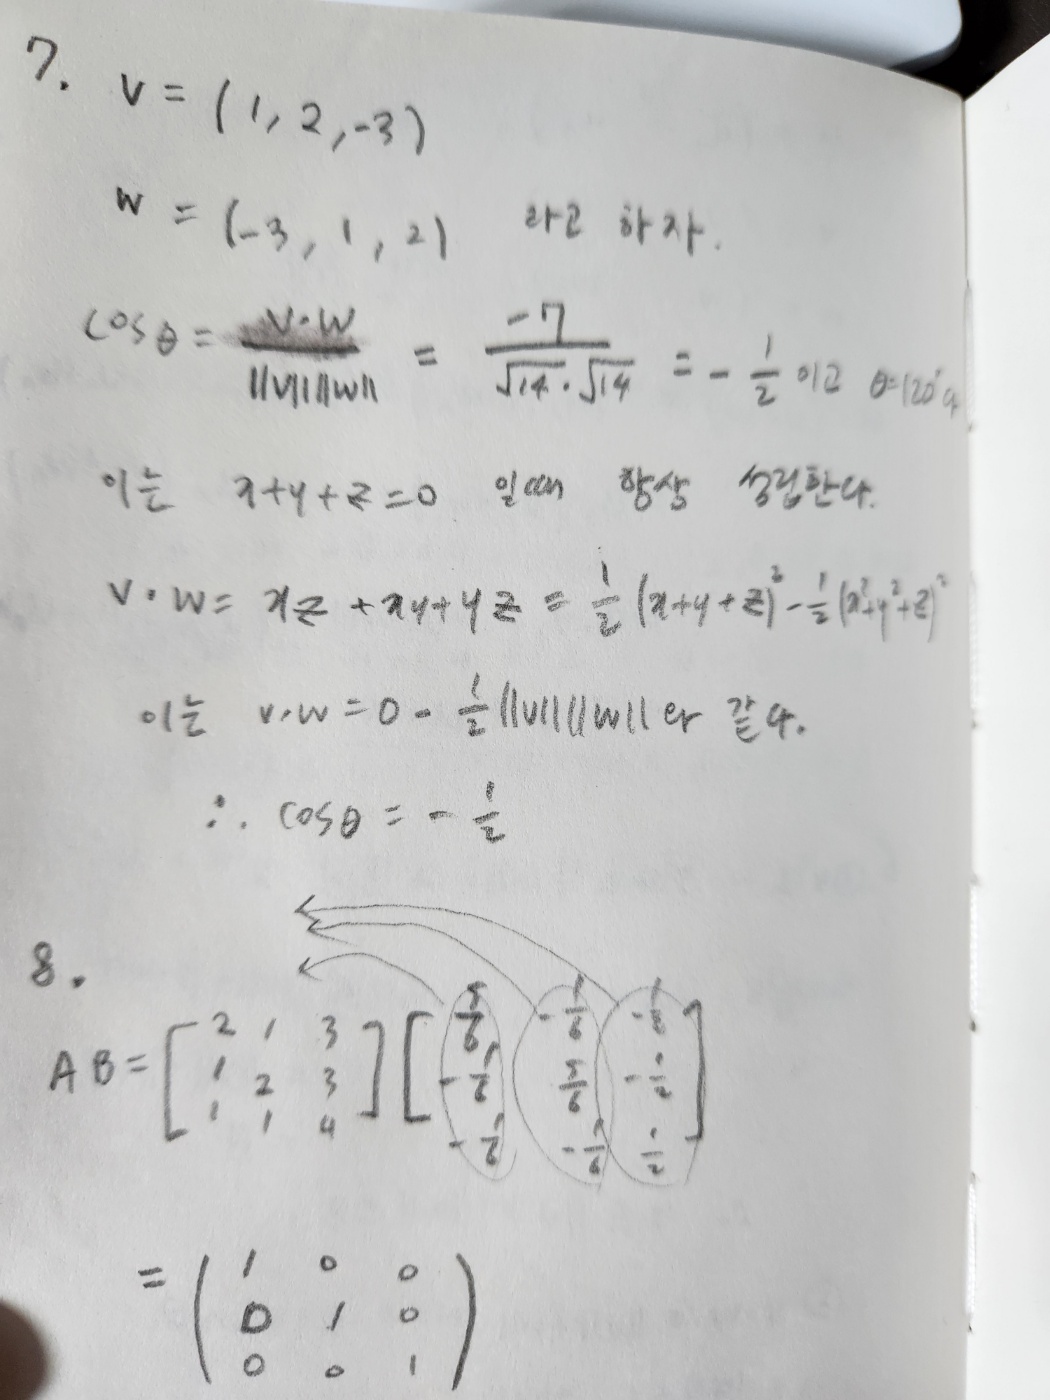 7. v = (1, 2, -3)
w = (-3, 1, 2) 라고 하자.
cosθ = v·w / ||v||||w|| = -7 / √14·√14 = -1/2 이고 θ=120°다
이는 x+y+z=0 일때 항상 성립한다.
v·w = xz + xy + yz = 1/2 (x+y+z)² - 1/2 (x²+y²+z)²
이는 v·w = 0 - 1/2 ||v||||w|| 와 같다.
∴ cosθ = -1/2
8.
AB = [2 1 3; 1 2 3; 1 1 4] [5/6 -1/6 ; -1/6 5/6 -1/2; -1/6 -1/6 1/2]
= (1 0 0; 0 1 0; 0 0 1)